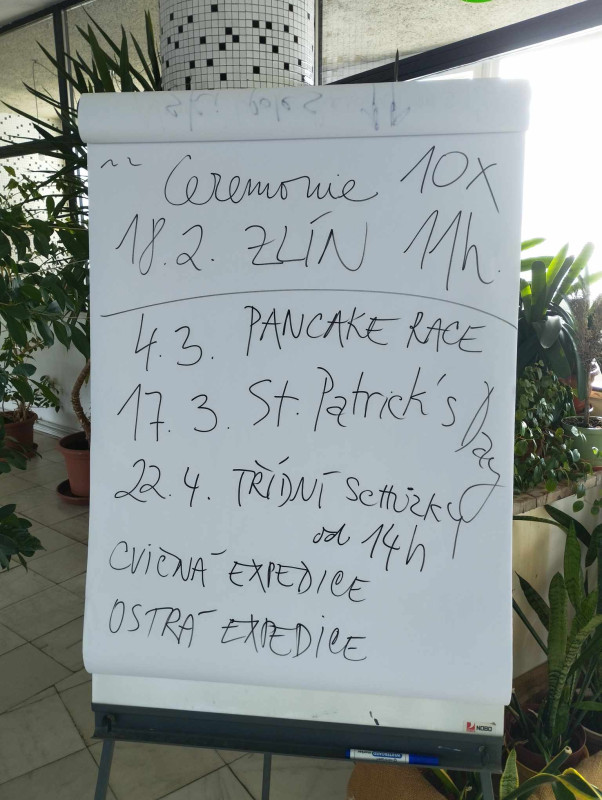 Ceremonie 10x
18.2. ZLÍN 11h.
4.3. PANCAKE RACE
17.3. St. Patrick's Day
22.4. TŘÍDNÍ SCHŮZKY
od 14h
CVIČNÁ EXPEDICE
OSTRÁ EXPEDICE
NOBO